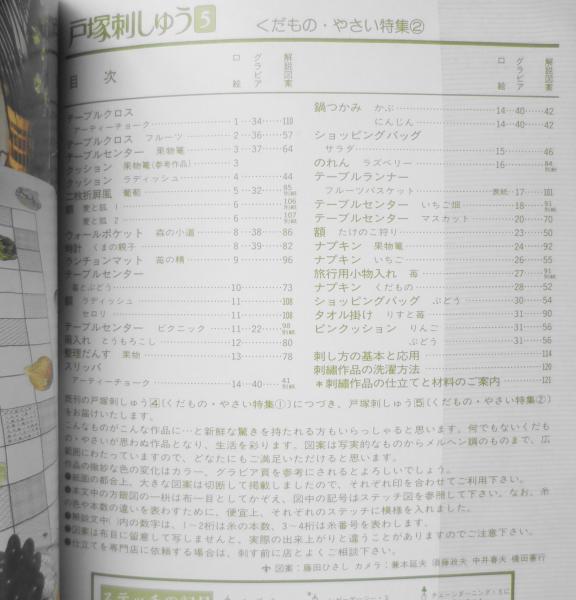 戸塚刺しゅう 5 くだもの・やさい特集②
目次 口絵 グラビア 解説図案
テーブルクロス
アーティーチョーク 1 34 110
テーブルクロス フルーツ 2 36 57
テーブルセンター 果物篭 3 37 64
クッション 果物篭(参考作品) 3
クッション ラディッシュ 4 44
二枚折屏風 葡萄 5 32 85 別紙
額 麦と狐 1 6 106 別紙
麦と狐 2 6 107 別紙
ウォールポケット 森の小道 8 38 86
時計 くまの親子 8 39 82
ランチョンマット 苺の精 9 96
テーブルセンター
苺とぶどう 10 73
額 ラディッシュ 11 108
セロリ 11 108
テーブルセンター ピクニック 11 22 98 別紙
小入れ とうもろこし 12 80
整理だんす 果物 13 78
スリッパ
アーティーチョーク 14 40 41 別紙
口絵 グラビア 解説図案
鍋つかみ かぶ 14 40 42
にんじん 14 40 42
ショッピングバッグ
サラダ 15 46
のれん ラズベリー 16 84 別紙
テーブルランナー
フルーツバスケット 表紙 17 101
テーブルセンター いちご畑 18 91 別紙
テーブルセンター マスカット 20 70
額 たけのこ狩り 23 50
ナプキン 果物篭 24 92
ナプキン いちご 26 55
旅行用小物入れ 苺 27 91 別紙
ナプキン くだもの 28 52
ショッピングバッグ ぶどう 30 54
タオル掛け りすと苺 31 90
ピンクッション りんご 31 56
ぶどう 31 56
刺し方の基本と応用 114
刺繡作品の洗濯方法 120
*刺繡作品の仕立てと材料のご案内 121
既刊の戸塚刺しゅう4(くだもの・やさい特集①)につづき、戸塚刺しゅう5(くだもの・やさい特集②)
をお届けいたします。
こんなものがこんな作品に…と新鮮な驚きを持たれる方もいらっしゃると思います。何でもないくだも
の・やさいが思わぬ作品となり、生活を彩ります。図案は写実的なものからメルヘン調のものまで、広
範囲にわたっていますので、どなたにもご満足いただけると思います。
作品の微妙な色の変化はカラー、グラビア頁を参考にされるとよろしいでしょう。
●紙面の都合上、大きな図案は切断して掲載しましたので、それぞれ印を合わせてご利用下さい。
●本文中の方眼図の一桝は布一目としてかぞえ、図中の記号はステッチ図を参照して下さい。なお、糸
の色や本数の違いを表わすために、便宜上、それぞれのステッチに模様を入れました。
●解説文中( )内の数字は、1~2桁は糸の本数、3~4桁は糸番号を表わします。
●図案は布目に留意して写しませんと、実際の出来上がりと違うことがありますのでご注意下さい。
●仕立てを専門店に依頼する場合は、刺す前に店とよくご相談下さい。
図案:藤田ひさし カメラ:兼本延夫 須藤政夫 中井春夫 横田善行